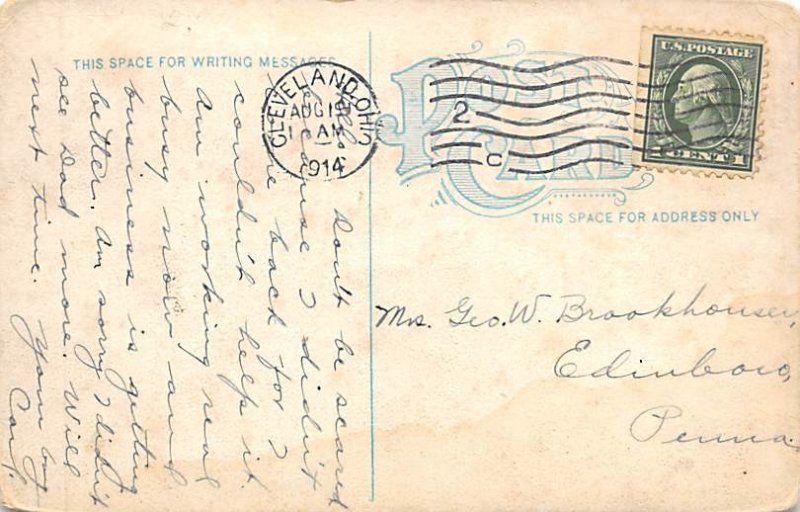 THIS SPACE FOR WRITING MESSAGES
Hello Don't be scared
because I didn't
come back for I
couldn't help it.
Am working real
busy now and
business is getting
better. Am sorry I didn't
see Dad more. Will
next time. Your boy
Carl.
CLEVELAND, OHIO
AUG
1 AM
1914
2
C
POST CARD
U.S. POSTAGE
1 CENT 1
THIS SPACE FOR ADDRESS ONLY
Mrs. Geo. W. Brookhouser,
Edinboro,
Penna.